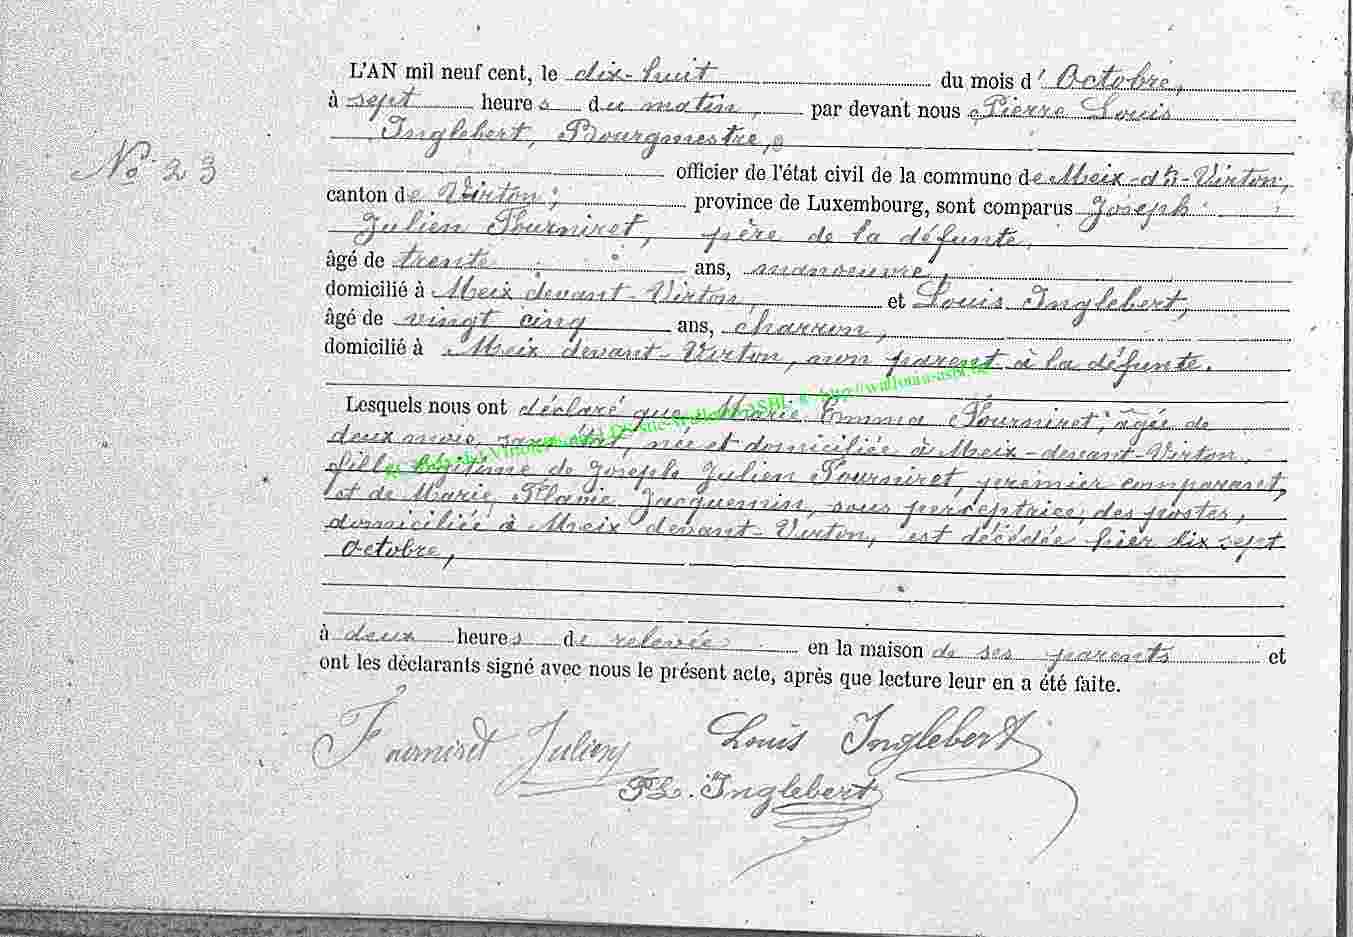 L'AN mil neuf cent, le dix-huit du mois d' Octobre,
à sept heures du matin, par devant nous Pierre Louis
Inglebert, Bourgmestre,
No 23
officier de l'état civil de la commune de Meix-dt-Virton,
canton de Virton; province de Luxembourg, sont comparus Joseph
Julien Fourniret, père de la défunte,
âgé de trente ans, manoeuvre,
domicilié à Meix devant-Virton, et Louis Inglebert,
âgé de vingt cinq ans, charron,
domicilié à Meix devant-Virton, non parent à la défunte.
Lesquels nous ont déclaré que Marie Emma Fourniret, âgée de
deux mois, sans état, née et domiciliée à Meix-devant-Virton,
fille légitime de Joseph Julien Fourniret, premier comparant,
et de Marie Flavie Jacquemin, sous perceptrice des postes,
domiciliée à Meix devant-Virton, est décédée hier dix sept
octobre,
à deux heures de relevée en la maison de ses parents et
ont les déclarants signé avec nous le présent acte, après que lecture leur en a été faite.
Fourniret Julien Louis Inglebert
PL. Inglebert